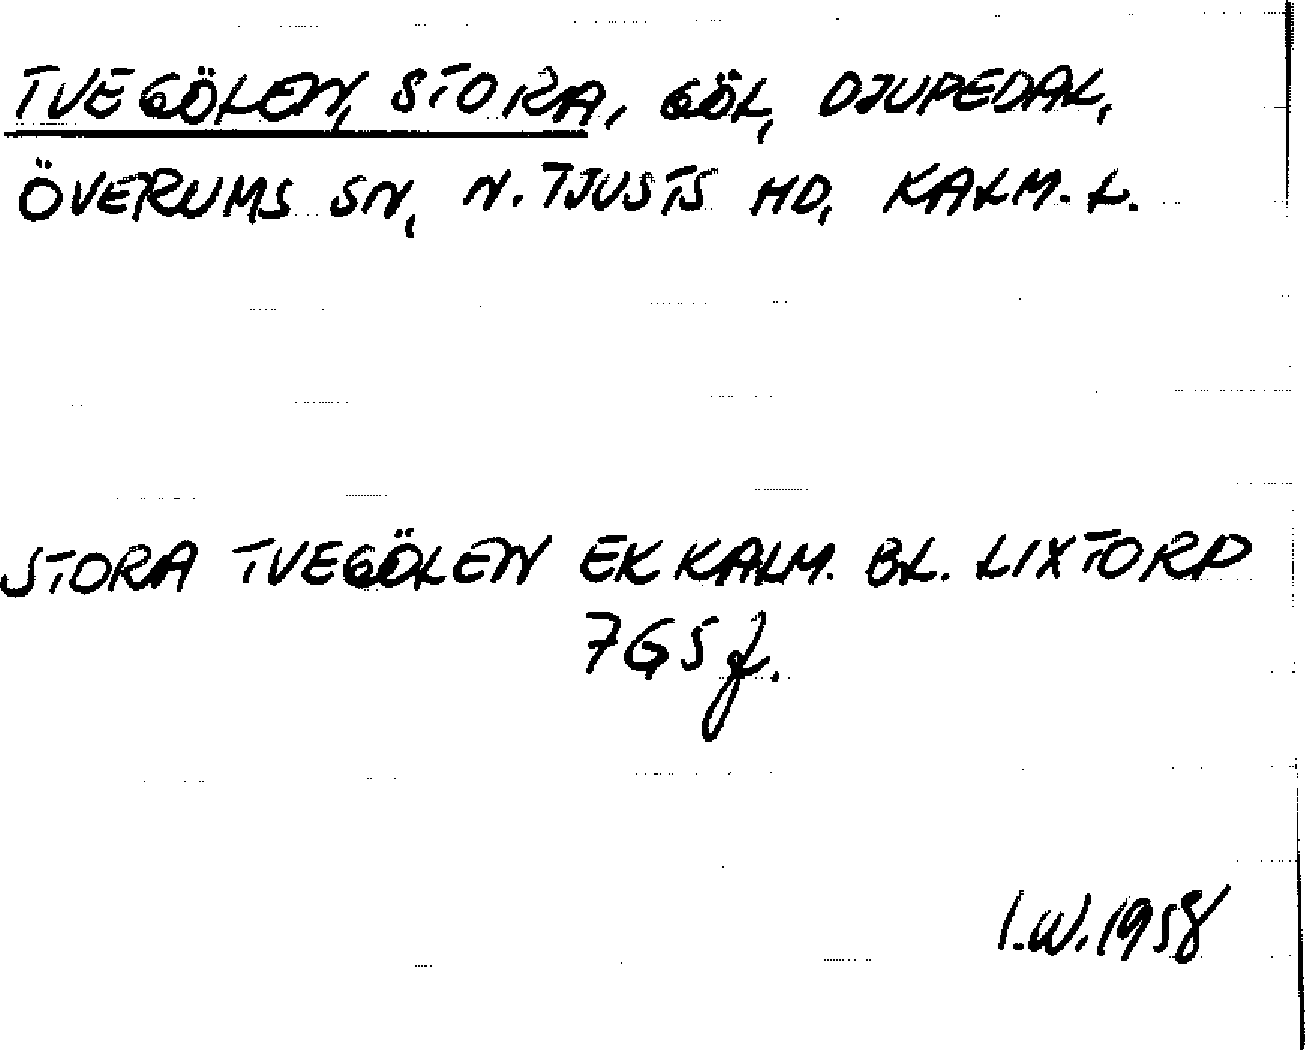 TVEGÖLEN, STORA, GÖL, DJUPEDAL,
ÖVERUMS SN, N. TJUSTS HD, KALM. L.
STORA TVEGÖLEN EK KALM. BL. LIXTORP
7G5f.
I.W. 1958